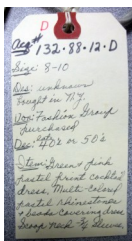 D
Acq# 132.88.12.D
Size: 8-10
Des: unknown
bought in N.Y.
Don: Fashion Group
purchased
Dec: 40's or 50's
Item: Green & pink
pastel print cocktail
dress, Multi-colored
pastel rhinestones
& beads covering dress
Scoop neck